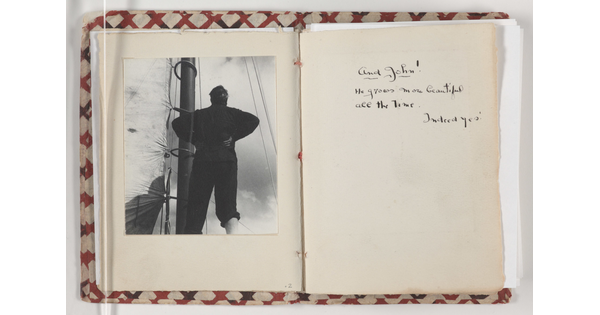 And John!
He grows more beautiful
all the time.
Indeed yes!